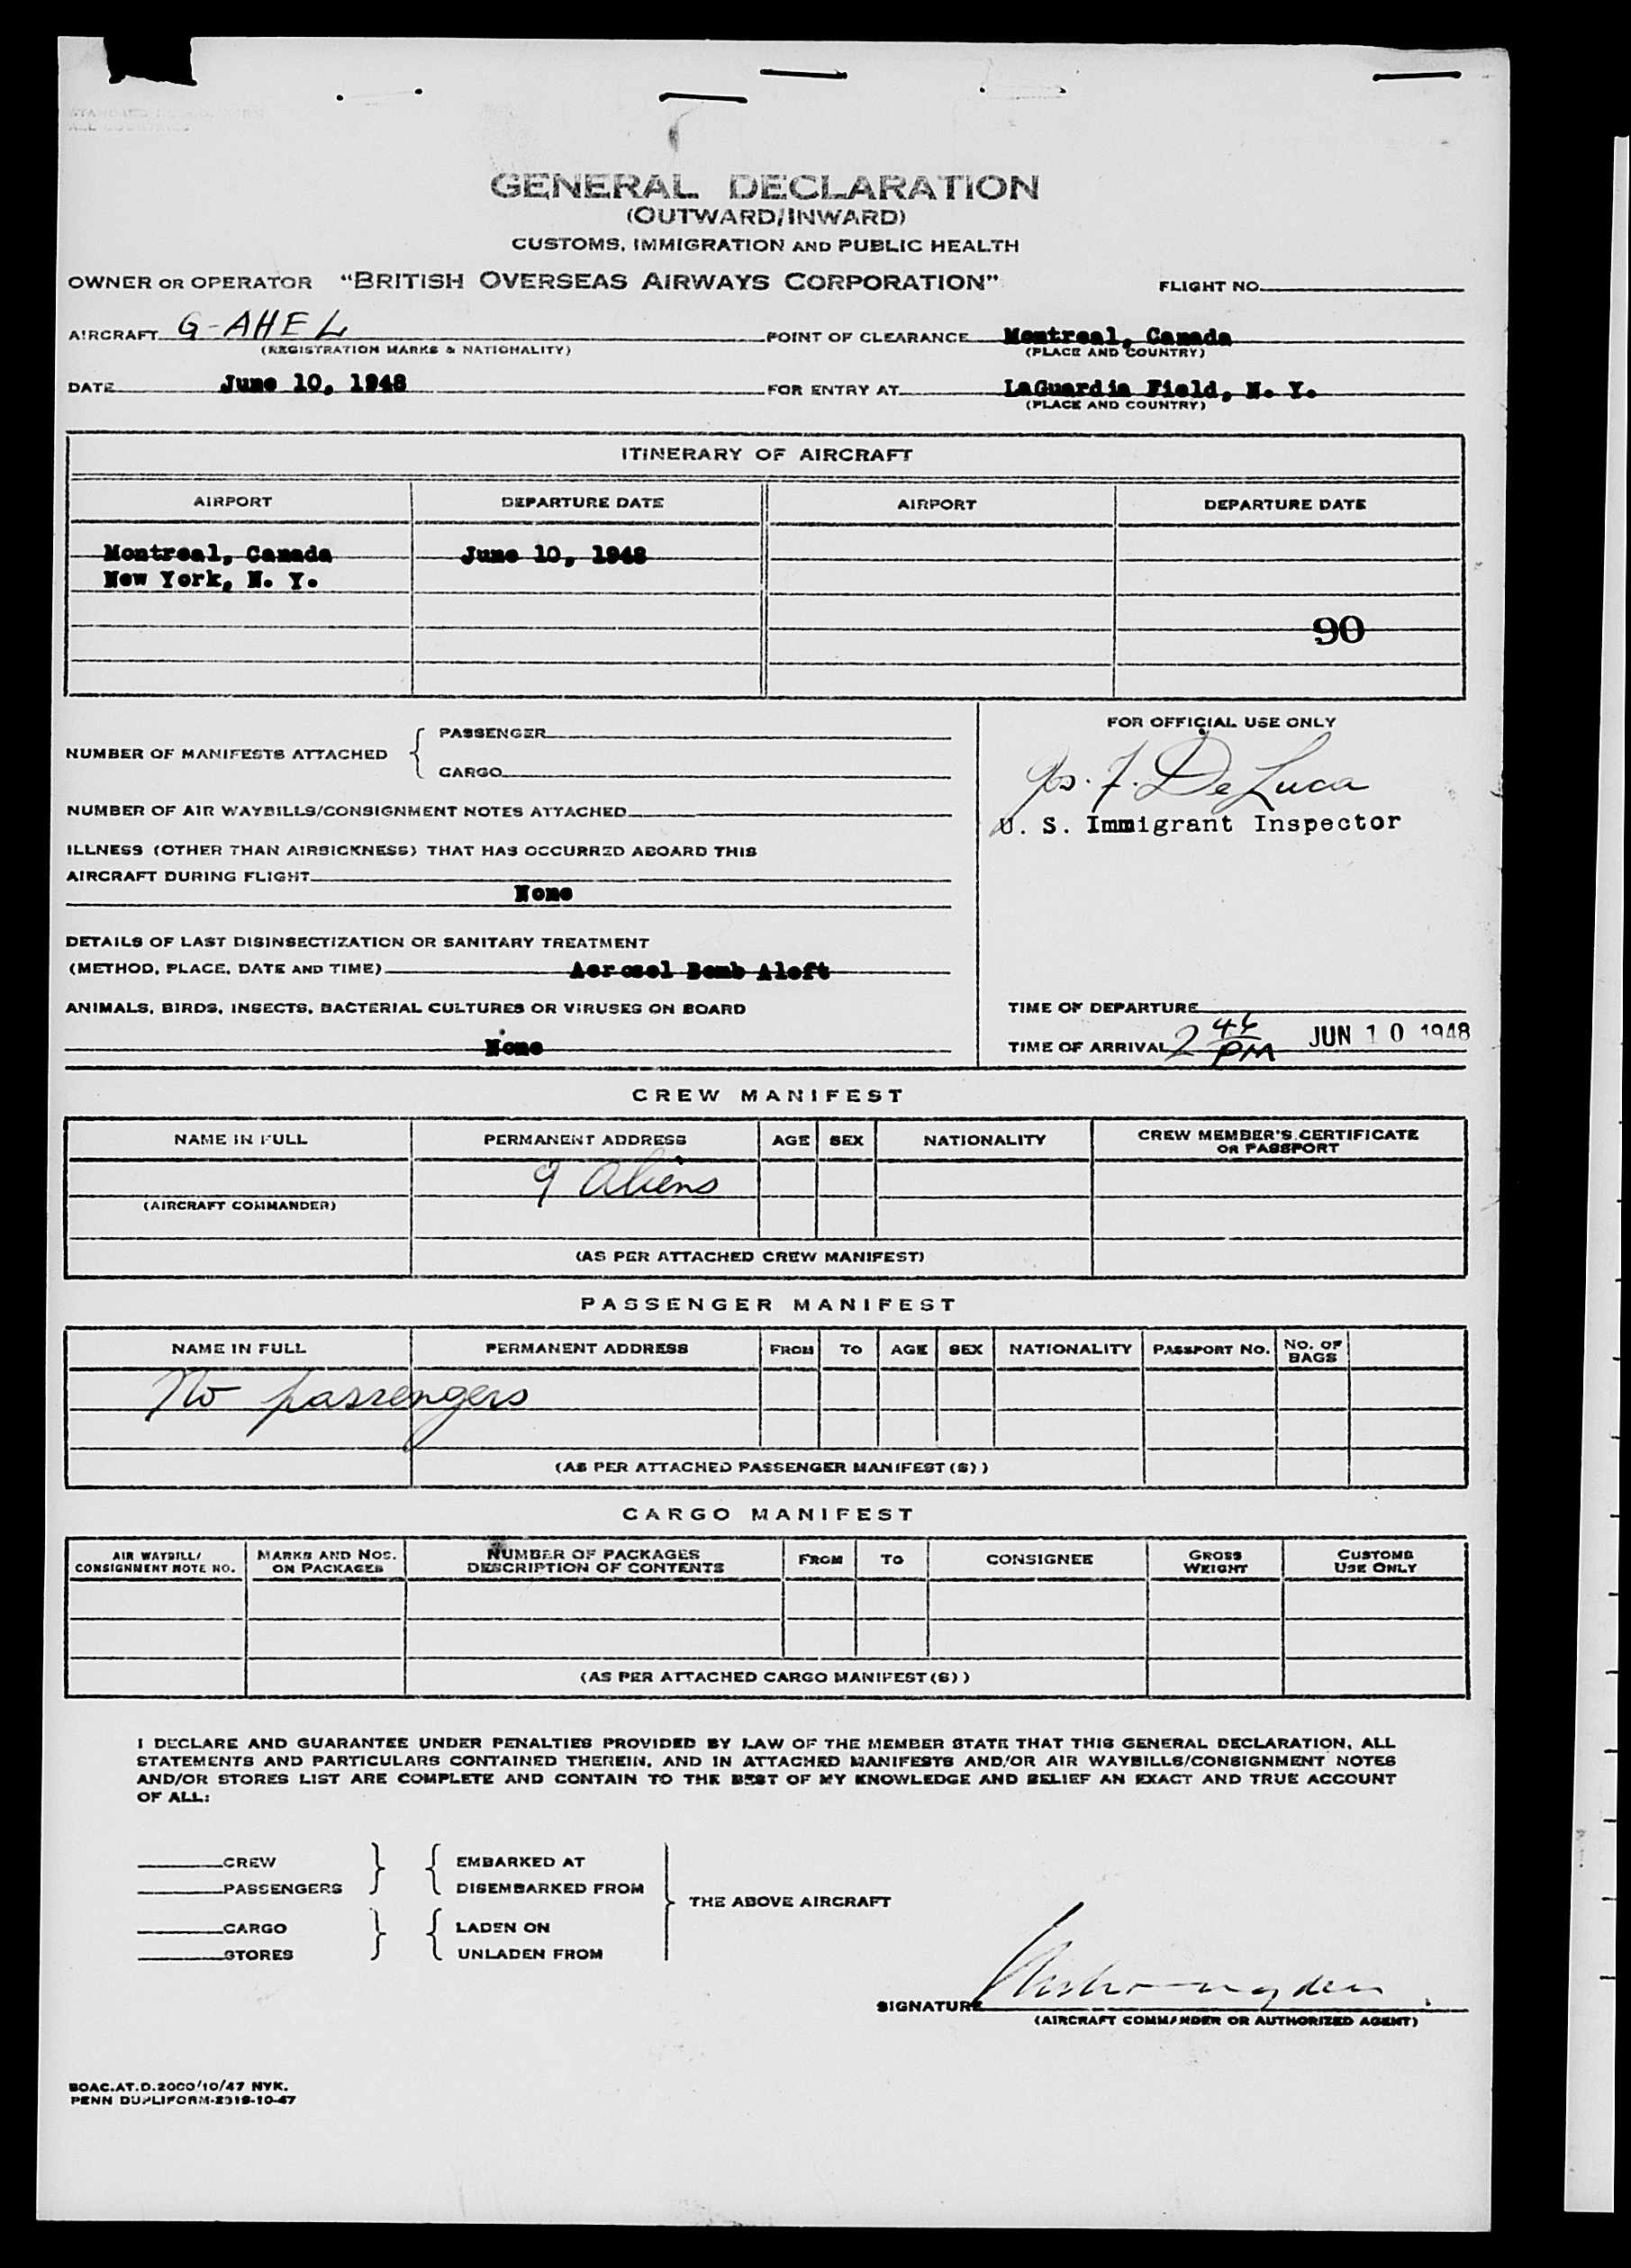 GENERAL DECLARATION
(OUTWARD/INWARD)
CUSTOMS, IMMIGRATION AND PUBLIC HEALTH
OWNER OR OPERATOR "BRITISH OVERSEAS AIRWAYS CORPORATION" FLIGHT NO.
AIRCRAFT G-AHEL POINT OF CLEARANCE Montreal, Canada
(REGISTRATION MARKS & NATIONALITY) (PLACE AND COUNTRY)
DATE June 10, 1948 FOR ENTRY AT LaGuardia Field, N. Y.
(PLACE AND COUNTRY)
ITINERARY OF AIRCRAFT
AIRPORT DEPARTURE DATE AIRPORT DEPARTURE DATE
Montreal, Canada June 10, 1948
New York, N. Y.
90
FOR OFFICIAL USE ONLY
NUMBER OF MANIFESTS ATTACHED { PASSENGER
CARGO
Jos. F. DeLuca
U. S. Immigrant Inspector
NUMBER OF AIR WAYBILLS/CONSIGNMENT NOTES ATTACHED
ILLNESS (OTHER THAN AIRSICKNESS) THAT HAS OCCURRED ABOARD THIS
AIRCRAFT DURING FLIGHT
None
DETAILS OF LAST DISINSECTIZATION OR SANITARY TREATMENT
(METHOD, PLACE, DATE AND TIME) Aerosol Bomb Aloft
ANIMALS, BIRDS, INSECTS, BACTERIAL CULTURES OR VIRUSES ON BOARD
None
TIME OF DEPARTURE
TIME OF ARRIVAL 2 46 PM JUN 10 1948
CREW MANIFEST
NAME IN FULL PERMANENT ADDRESS AGE SEX NATIONALITY CREW MEMBER'S CERTIFICATE OR PASSPORT
9 Aliens
(AIRCRAFT COMMANDER)
(AS PER ATTACHED CREW MANIFEST)
PASSENGER MANIFEST
NAME IN FULL PERMANENT ADDRESS FROM TO AGE SEX NATIONALITY PASSPORT NO. NO. OF BAGS
No passengers
(AS PER ATTACHED PASSENGER MANIFEST(S))
CARGO MANIFEST
AIR WAYBILL/ CONSIGNMENT NOTE NO. MARKS AND NOS. ON PACKAGES NUMBER OF PACKAGES DESCRIPTION OF CONTENTS FROM TO CONSIGNEE GROSS WEIGHT CUSTOMS USE ONLY
(AS PER ATTACHED CARGO MANIFEST(S))
I DECLARE AND GUARANTEE UNDER PENALTIES PROVIDED BY LAW OF THE MEMBER STATE THAT THIS GENERAL DECLARATION, ALL
STATEMENTS AND PARTICULARS CONTAINED THEREIN, AND IN ATTACHED MANIFESTS AND/OR AIR WAYBILLS/CONSIGNMENT NOTES
AND/OR STORES LIST ARE COMPLETE AND CONTAIN TO THE BEST OF MY KNOWLEDGE AND BELIEF AN EXACT AND TRUE ACCOUNT
OF ALL:
CREW } { EMBARKED AT
PASSENGERS DISEMBARKED FROM
THE ABOVE AIRCRAFT
CARGO } { LADEN ON
STORES UNLADEN FROM
SIGNATURE
(AIRCRAFT COMMANDER OR AUTHORIZED AGENT)
BOAC.AT.D.2000/10/47 NYK.
PENN DUPLIFORM-2319-10-47